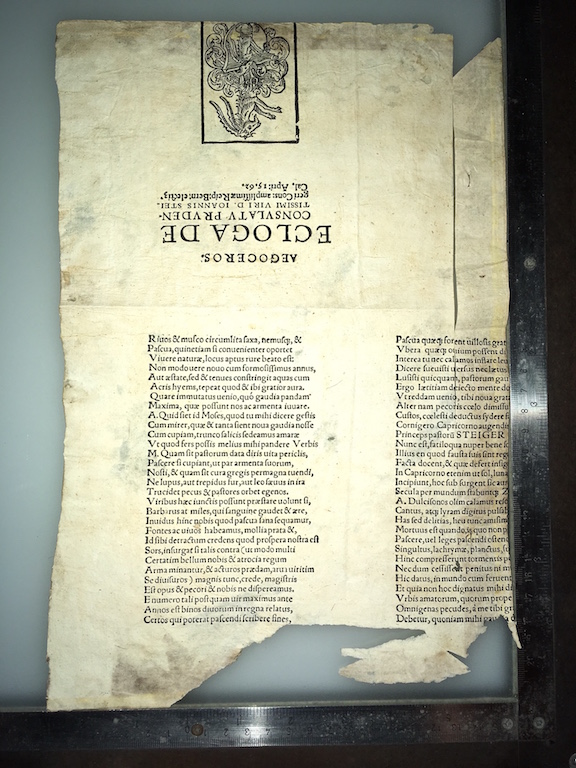 AEGOCEROS.
ECLOGA DE
CONSVLATV PRVDEN-
TISSIMI VIRI D. IOANNIS STEI.
geri Cons: amplissimæ Reip: Bern: electi,
Cal. Apri: 1562.
Riuos & musco circumlita saxa, nemusq;, &
Pascua, quinetiam si conuenienter oportet
Viuere naturæ, locus aptus rure beato est
Non modo uere nouo cum formosissimus annus,
Aut æstate, sed & tenues constringit aquas cum
Acris hyems, tepeat quod & ibi gratior aura.
Quare immutatus uenio, quó gaudia pandam
Maxima, quæ possunt nos ac armenta iuuare.
A. Quid sit id Moses, quod tu mihi dicere gestis
Cum miror, quæ & tanta sient noua gaudia nosse
Cum cupiam, trunco salicis sedeamus amaræ
Vt quod fers possis melius mihi pandere Verbis
M. Quam sit pastorum data diris uita periclis,
Pascere si cupiant, ut par armenta suorum,
Nosti, & quam sit cura gregis permagna tuendi,
Ne lupus, aut trepidus fur, aut leo sæuus in ira
Trucidet pecus & pastores orbet egenos.
Viribus hæc iunctis possunt præstare uolunt si,
Barbarus at miles, qui sanguine gaudet & ære,
Inuidus hinc nobis quod pascua sana sequamur,
Fontes ac uiuos habeamus, mollia prata &,
Id sibi detractum credens quod prospera nostra est
Sors, insurgat si talis contra (ut modo multi
Certatim bellum nobis & atrocia regum
Arma minantur, & acturos prædam, arui uiritim
Se diuisuros) magnis tunc, crede, magistris
Est opus & pecori & nobis ne dispereamus.
E numero tali postquam uir maximus ante
Annos est binos diuorum in regna relatus,
Certos qui poterat pascendi scribere fines,
Pascua quæq; forent ullosis
Vbera quæq; ouium possent
Interea tu nec calamos inflare
Dicere sueuisti uersus nec lætus
Lusisti quicquam, pastorum
Ergo lætitiam deiecto mente
Vt reddam uenio, tibi noua
Alter nam pecoris cœlo dimissus
Custos, cœlesti deductus sydere
Cornigero Capricorno augendis
Princeps pastorū STEIGER
Nunc est, fatiloqua nuper bene
Illius en quod fausta fuis sint
Facta docent, & quæ defert
In Capricorno etenim ut sol,
Incipiunt, hoc sub surgent sic
Secula per mundum stabuntq;
A. Dulcisonos olim calamos
Cantus, atq; lyram digitis
Has sed delitias, heu tunc
Mortuus est quando, is quo non
Pascere, uel leges pascendi
Singultus, lachrymæ, planctus,
Hinc compresserunt tormentis
Necdum cessissent penitus ni
Hic datus, in mundo cum
Et quia non hoc dignatus mihi
Vrbis amatorum, quorum
Omnigenas pecudes, á me tibi
Debetur, quoniam mihi